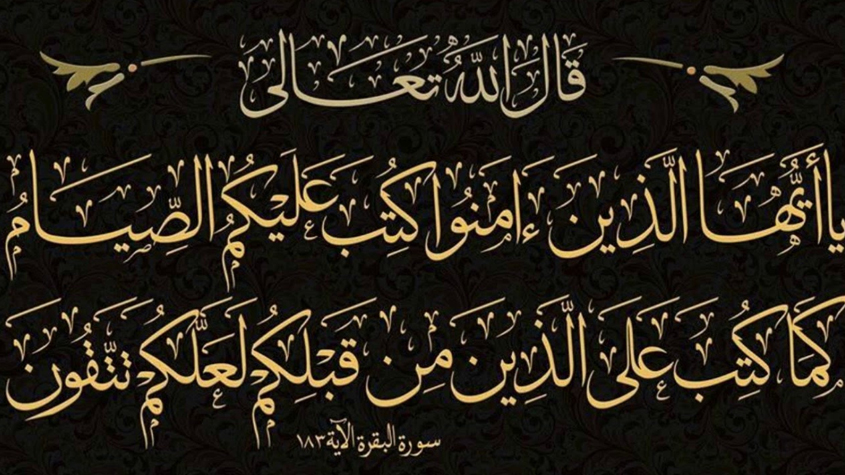 قَالَ اللَّهُ تَعَالَى
يَا أَيُّهَا الَّذِينَ ءَامَنُوا كُتِبَ عَلَيْكُمُ الصِّيَامُ
كَمَا كُتِبَ عَلَى الَّذِينَ مِن قَبْلِكُمْ لَعَلَّكُمْ تَتَّقُونَ
سورة البقرة الآية ١٨٣